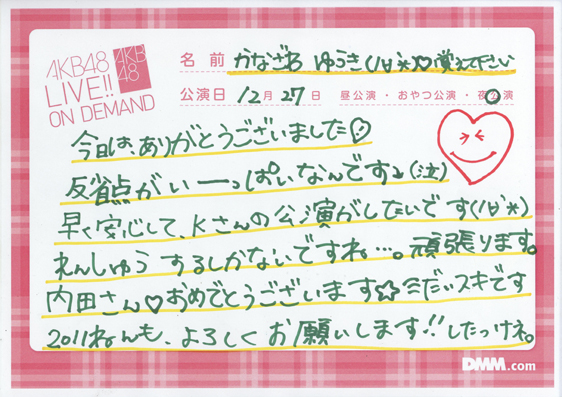 AKB48
LIVE!!
ON DEMAND
AKB
48
名前 かなざわ ゆうき(/∀＼*)♡覚えて下さい
公演日 12月27日 昼公演・おやつ公演・夜公演
今日は、ありがとうございました♡
反省点がいーっぱいなんです↓(泣)
早く安心して、Kさんの公演がしたいです(/∀＼*)
れんしゅうするしかないですね…。頑張ります。
内田さん♡おめでとうございます☆ミだいスキです
2011ねんも、よろしくお願いします!!したっけネ。
DMM.com